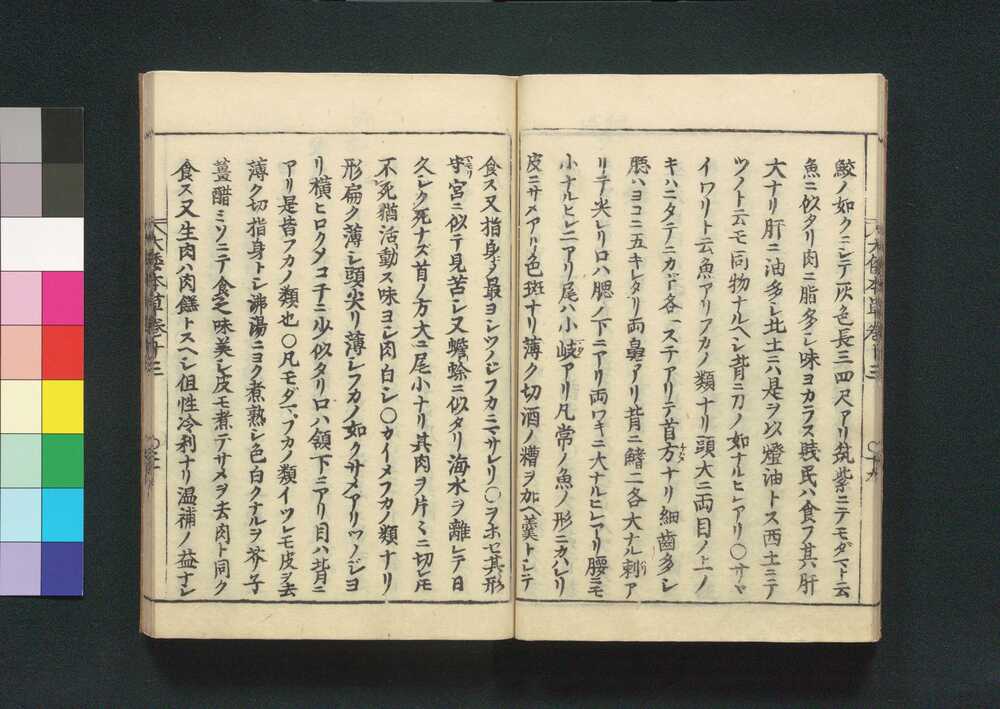 鮫ノ如クニシテ灰色長三四尺アリ筑紫ニテモダマト云
魚ニ似タリ肉ニ脂多シ味ヨカラス賤民ハ食フ其肝
大ナリ肝ニ油多シ北土ニハ是ヲ以燈油トス西土ニテ
ツノトヽ云モ同物ナルヘシ背ニ刀ノ如ナルヒレアリ〇サヾ
イワリト云魚アリフカノ類ナリ頭大ニ両目ノ上ノ
キハニタテニカド各一ステアリテ首方ナリ細歯多シ
腮ハヨコニ五キレタリ両鼻アリ背ニ鰭二各大ナル刺ア
リテ尖レリ口ハ腮ノ下ニアリ両ワキニ大ナルヒレアリ腰ニモ
小ナルヒレ二アリ尾ハ小岐アリ凡常ノ魚ノ形ニカハレリ
皮ニサメアリ色斑ナリ薄ク切酒ノ糟ヲ加ヘ羹トシテ
食ス又指身ニ最ヨシツノジフカニマサレリ〇ヲホセ其形
守宮ニ似テ見苦シ又蟾蜍ニ似タリ海水ヲ離レテ日
久シク死ナズ首ノ方大ニ尾小ナリ其肉ヲ片々ニ切レモ
不死猶活動ス味ヨシ肉白シ〇カイメフカノ類ナリ
形扁ク薄シ頭尖リ薄シフカノ如クサメアリツノジヨ
リ横ヒロクメコチニ少似タリ口ハ頷下ニアリ目ハ背ニ
アリ是皆フカノ類也〇凡モダマフカノ類イツレモ皮ヲ去
薄ク切指身トシ沸湯ニヨク煮熟シ色白クナルヲ芥子
薑醋ミソニテ食之味美シ皮モ煮テサメヲ去肉ト同ク
食ス又生肉ハ肉餻トスヘシ但性冷利ナリ温補ノ益ナシ
大和本草巻之十三